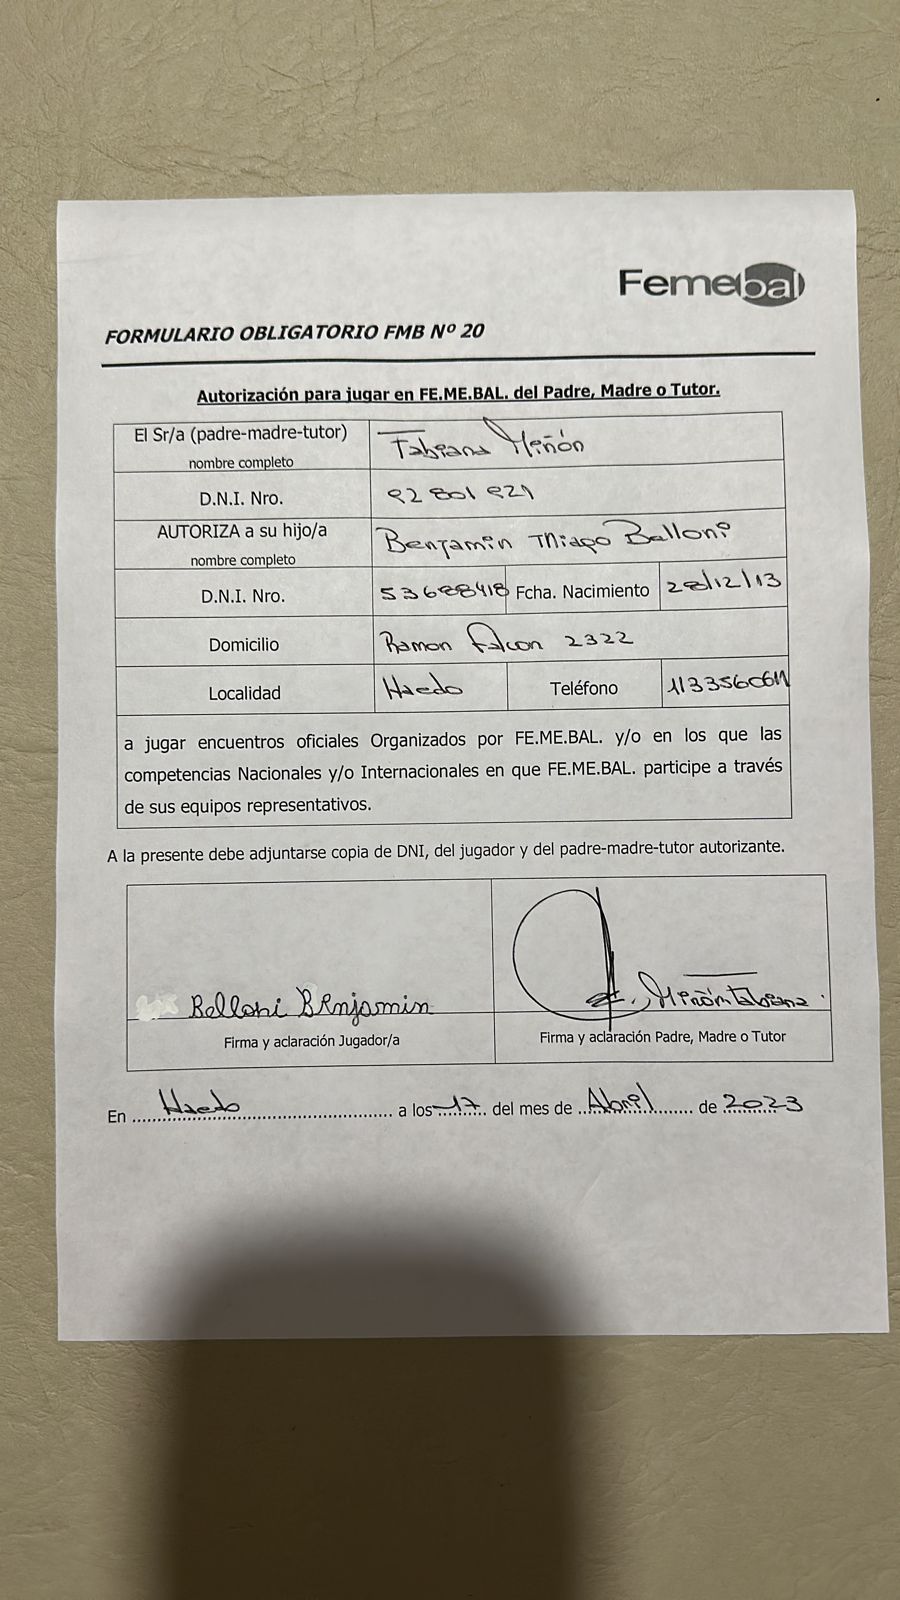 Femebal
FORMULARIO OBLIGATORIO FMB Nº 20
Autorización para jugar en FE.ME.BAL. del Padre, Madre o Tutor.
El Sr/a (padre-madre-tutor) Fabiana Miñón
nombre completo
D.N.I. Nro.
AUTORIZA a su hijo/a Benjamin Thiago Belloni
nombre completo
D.N.I. Nro. 53688418 Fcha. Nacimiento 28/12/13
Domicilio Ramon Falcon 2322
Localidad Haedo Teléfono
a jugar encuentros oficiales Organizados por FE.ME.BAL. y/o en los que las
competencias Nacionales y/o Internacionales en que FE.ME.BAL. participe a través
de sus equipos representativos.
A la presente debe adjuntarse copia de DNI, del jugador y del padre-madre-tutor autorizante.
Belloni Benjamin Miñón Fabiana.
Firma y aclaración Jugador/a Firma y aclaración Padre, Madre o Tutor
En Haedo a los 17 del mes de Abril de 2023